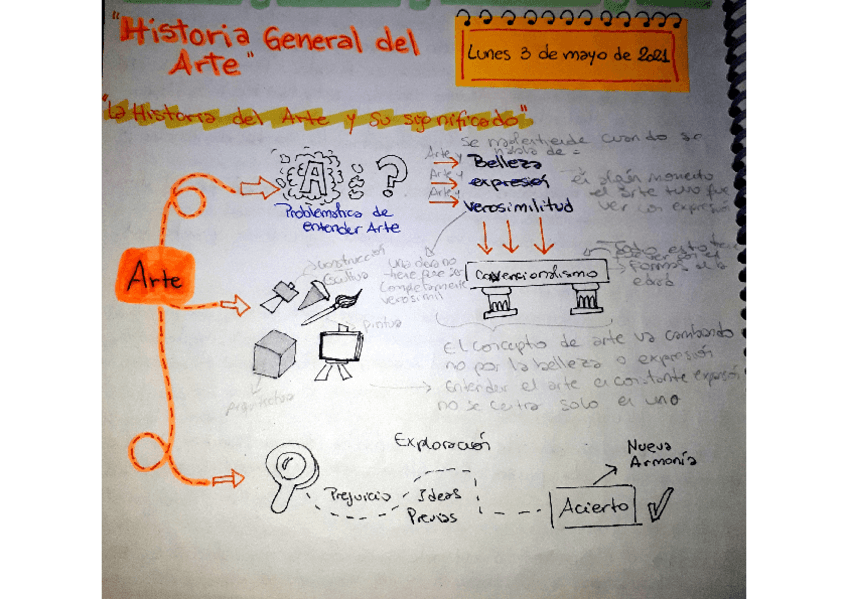 "Historia General del
Arte"
Lunes 3 de mayo de 2021
"La Historia del Arte y su significado"
se malentiende cuando se
habla de =
Arte y Belleza
Arte y expresión
Arte y verosimilitud
en algún momento
el arte tuvo que
ver con expresión
A ?
Problemática de
entender Arte
Arte
construcción
una obra no
tiene que ser
completamente
verosimil
convensionalismo
Todo esto
formas de la
pintura
arquitectura
El concepto de arte va cambiando
no por la belleza o expresión
entender el arte en constante expresión
no se centra solo en uno
Exploración
Prejuicio
Ideas
Previas
Acierto
Nueva
Armonía